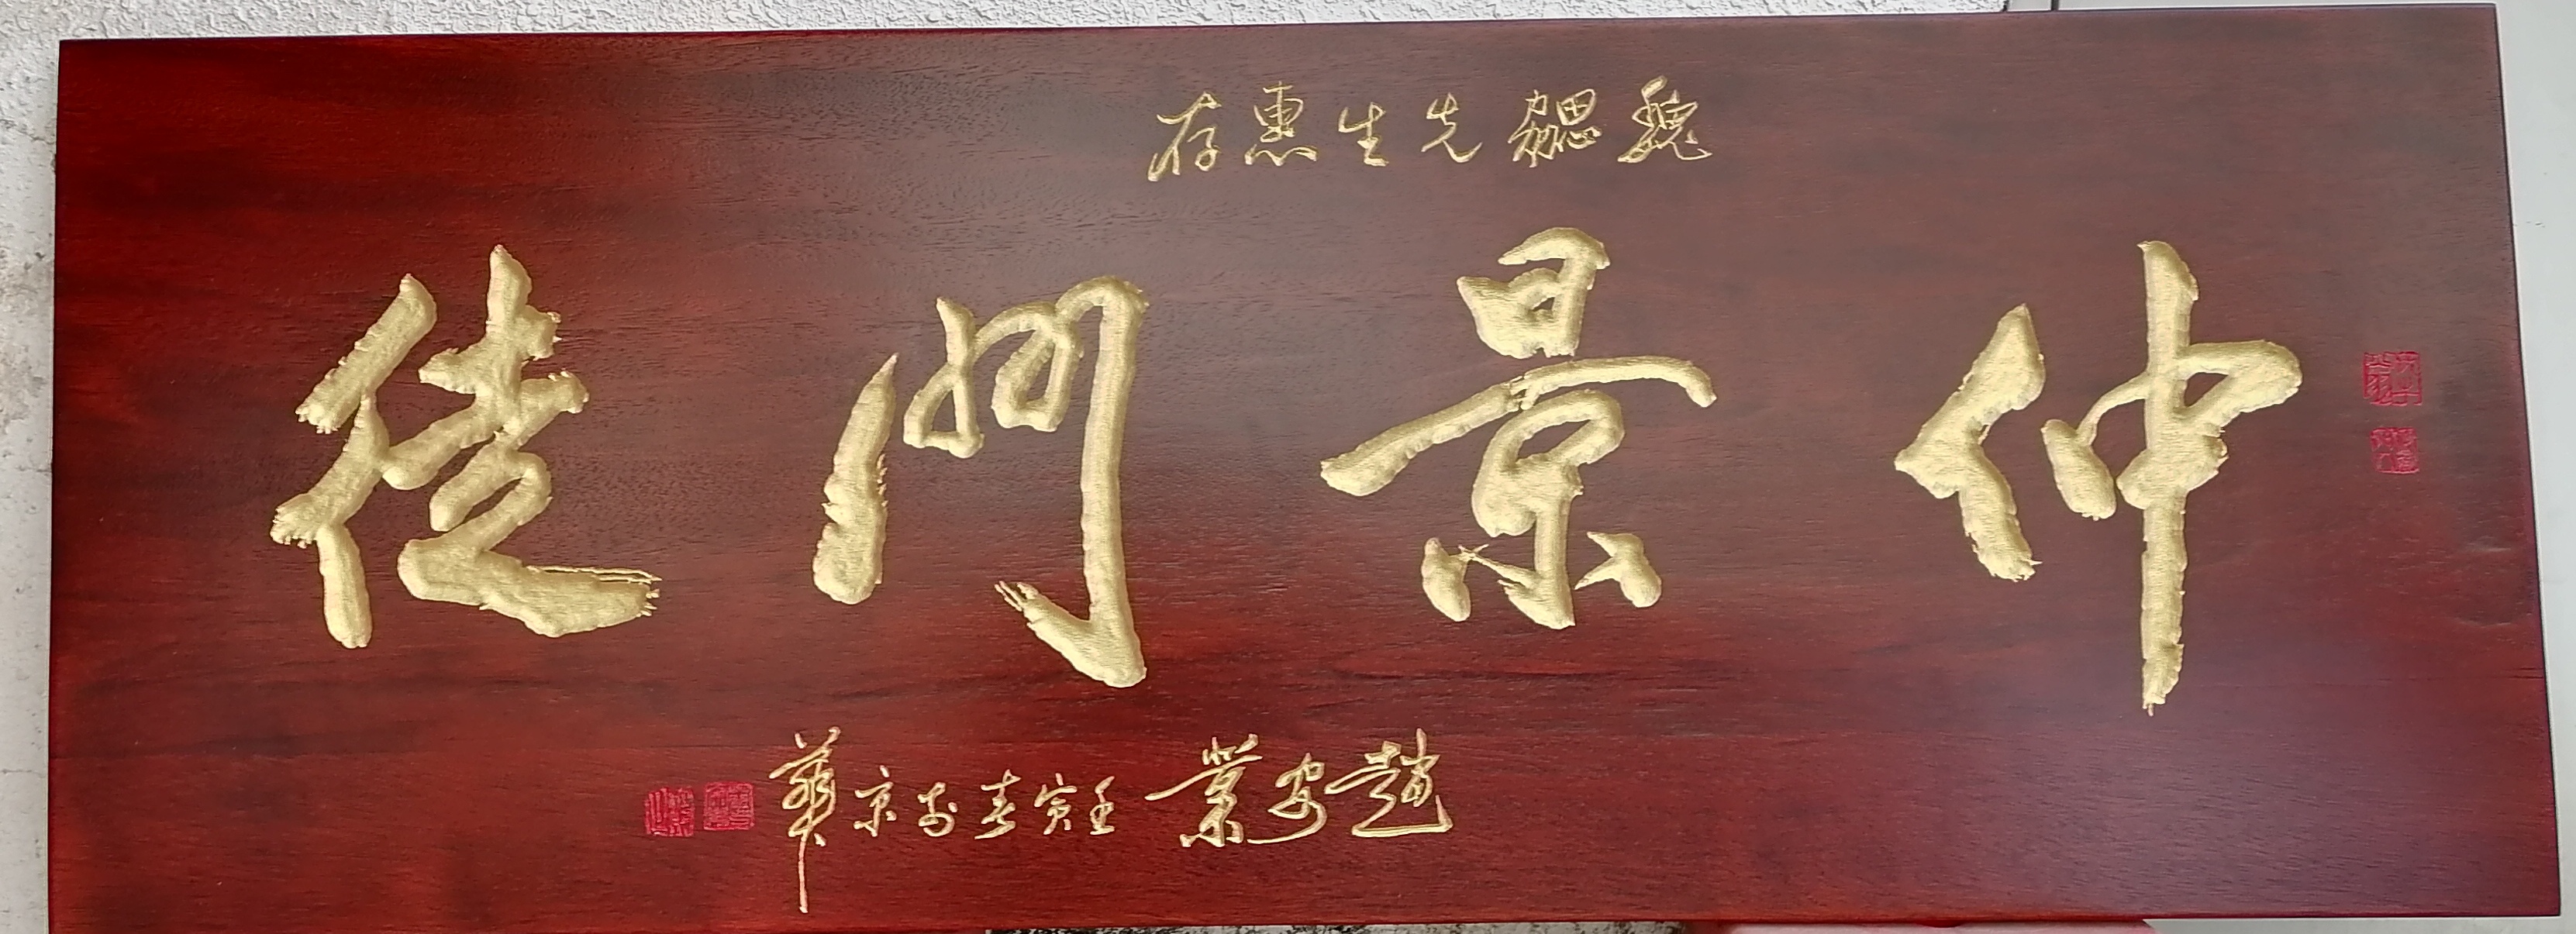 魏勰先生惠存
仲景門徒
趙安業壬寅春於京華